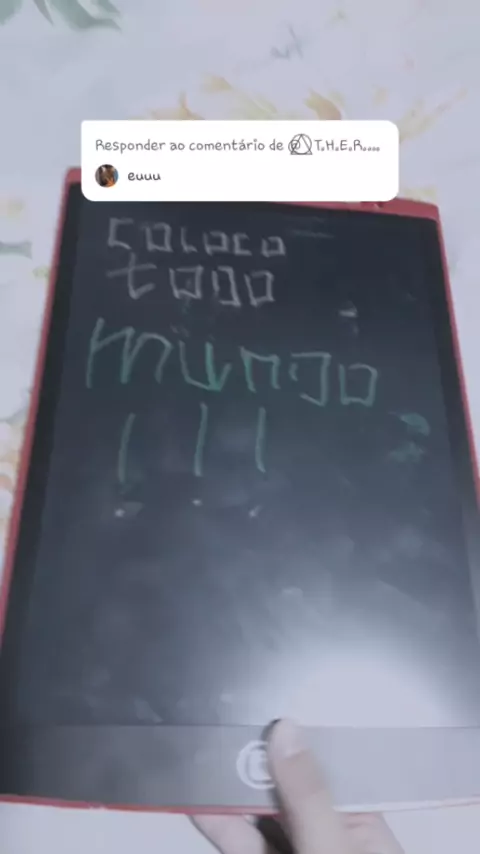 Responder ao comentário de Ⓐ T.H.E.R....
euuu
COLOCO
TODO
MUNDO
!!!